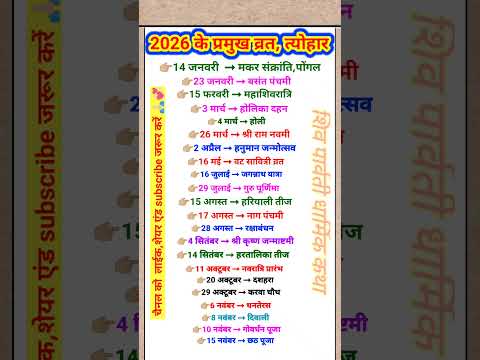 2026 के प्रमुख व्रत, त्योहार
👉🏼14 जनवरी → मकर संक्रांति,पोंगल
👉🏼23 जनवरी → बसंत पंचमी
👉🏼15 फरवरी → महाशिवरात्रि
👉🏼3 मार्च → होलिका दहन
👉🏼4 मार्च → होली
👉🏼26 मार्च → श्री राम नवमी
👉🏼2 अप्रैल → हनुमान जन्मोत्सव
👉🏼16 मई → वट सावित्री व्रत
👉🏼16 जुलाई → जगन्नाथ यात्रा
👉🏼29 जुलाई → गुरु पूर्णिमा
👉🏼15 अगस्त → हरियाली तीज
👉🏼17 अगस्त → नाग पंचमी
👉🏼28 अगस्त → रक्षाबंधन
👉🏼4 सितंबर → श्री कृष्ण जन्माष्टमी
👉🏼14 सितंबर → हरतालिका तीज
👉🏼11 अक्टूबर → नवरात्रि प्रारंभ
👉🏼20 अक्टूबर → दशहरा
👉🏼29 अक्टूबर → करवा चौथ
👉🏼6 नवंबर → धनतेरस
👉🏼8 नवंबर → दिवाली
👉🏼10 नवंबर → गोवर्धन पूजा
👉🏼15 नवंबर → छठ पूजा
चैनल को लाईक,शेयर एंड subscribe जरूर करें
शिव पार्वती धार्मिक कथा